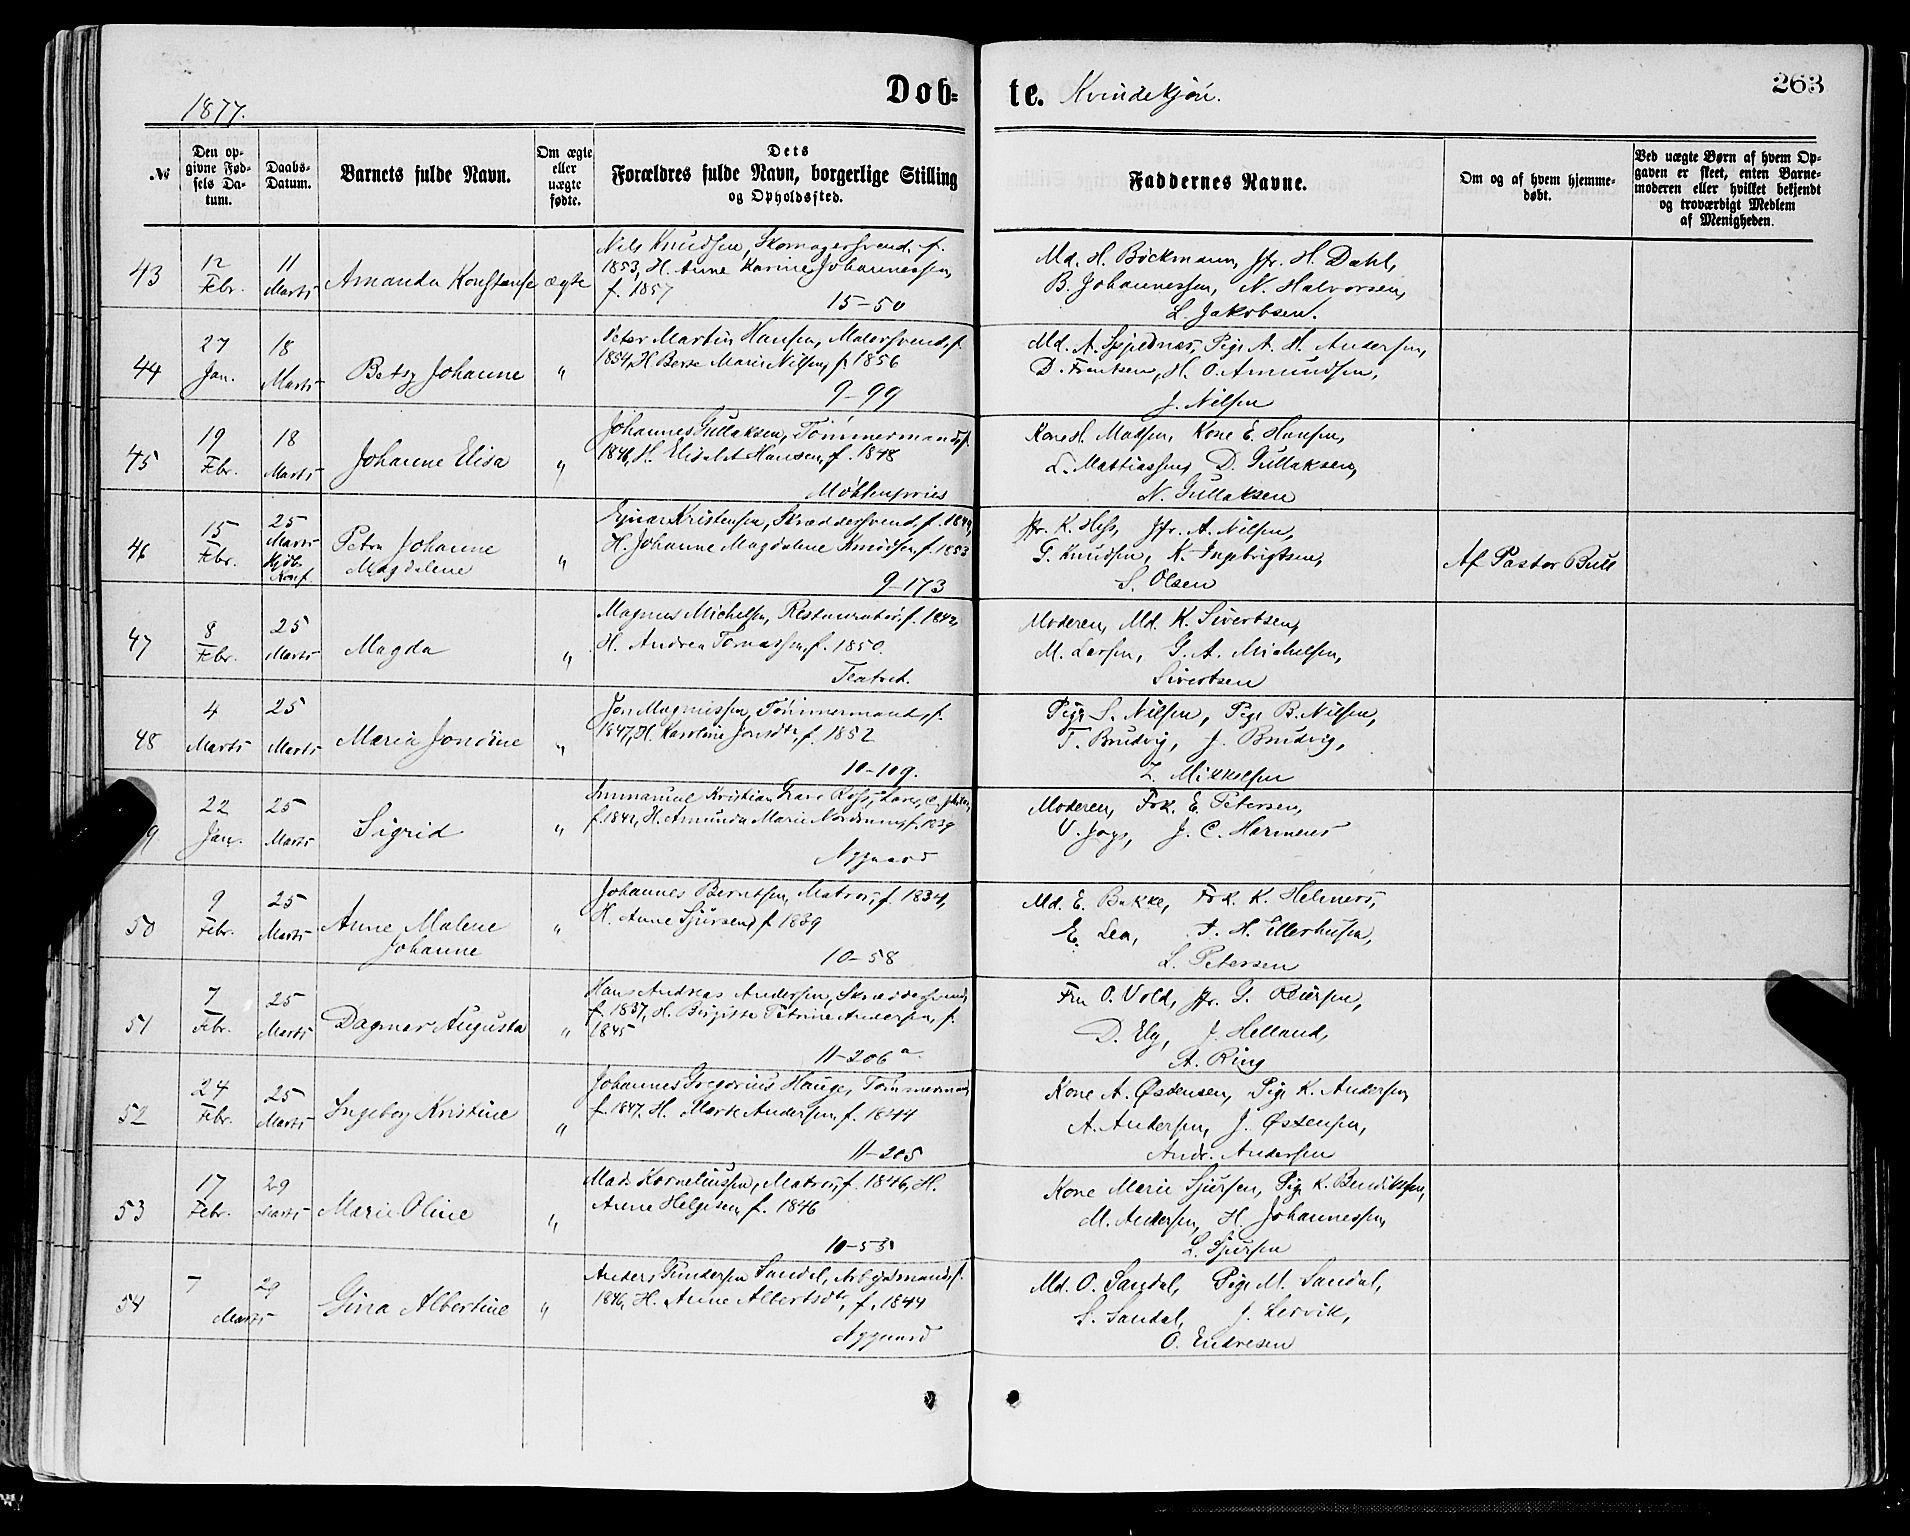 1877.
Døb= te. Kvindekjøn.
263
№
Den op-
givne Fød-
sels Da-
tum.
Daabs-
Datum.
Barnets fulde Navn.
Om ægte
eller
uægte
fødte.
Dets
Forældres fulde Navn, borgerlige Stilling
og Opholdssted.
Faddernes Navne.
Om og af hvem hjemme-
døbt.
Ved uægte Børn af hvem Op-
gaven er skeet, enten Barne-
moderen eller hvilket bekjendt
og troværdigt Medlem
af Menigheden.
43
12 Febr.
11 Marts
Amanda Konstanse
ægte
Nils Knudsen, Skomagersvend, f.
1853, H. Anne Karine Johannessen,
f. 1857
15-50
Md. H. Böckmann, Jfr. H. Dahl,
B. Johannessen, N. Halvorsen,
L. Jakobsen.
44
27 Jan.
18 Marts
Betsy Johanne
"
Peter Martin Hansen, Malersvend, f.
1854, H. Berte Marie Nilsen, f. 1856
9-99
Md. A. Pige A. H. Andersen,
D. Frentsen, H. O. Amundsen,
J. Nilsen
45
19 Febr.
18 Marts
Johanne Elisa
"
Johannes Gullaksen, Tömmermand, f.
1846, H. Elisabet Hansen, f. 1848
Möhlenpries
Kone H. Madsen, Kone E. Hansen,
L. Mattiassen, D. Gullaksen,
N. Gullaksen
46
15 Febr.
25 Marts
Kjöb.
Konf.
Petra Johanne
Magdalene
"
Ejnar Kristensen, Skræddersvend, f. 1849,
H. Johanne Magdalene Knudsen, f. 1853
9-173
Jfr. K. Hess, Jfr. A. Nilsen,
G. Knudsen, K. Ingebrigtsen,
S. Olsen
Af Pastor Bull
47
8 Febr.
25 Marts
Magda
"
Magnus Michelsen, Restauratør, f. 1842,
H. Andrea Tomassen, f. 1850.
Teatret.
Moderen, Md. K. Sivertsen,
M. Larsen, G. A. Michelsen,
Sivertsen
48
4 Marts
25 Marts
Maria Jondine
"
Jon Magnussen, Tömmermand, f.
1847, H. Karoline Jonsdtr, f. 1852
10-109.
Pige S. Nilsen, Pige B. Nilsen,
T. Brudvig, J. Brudvig,
Z. Mikkelsen
22 Jan.
25 Marts
Sigrid
"
Immanuel Kristian Grave Ross, Lærer,
f. 1842, H. Amunda Marie f. 1839
Nygaard
Moderen, Frk. E. Petersen,
V. Joys, J. C. Harmens
50
9 Febr.
25 Marts
Anne Malene
Johanne
"
Johannes Berntsen, Matros, f. 1834,
H. Anne Sjursen, f. 1839
10-58
Md. E. Bakke, Frk. K. Helmers,
E. Lea, A. H. Ellerhusen,
L. Petersen
51
7 Febr.
25 Marts
Dagmar Augusta
"
Hans Andreas Andersen, Skræddersvend,
f. 1837, H. Birgitte Petrine Andersen, f.
1845
11-206 a.
Fru O. Vold, Jfr. G. Reiersen,
D. Ely, J. Helland,
A. Ring
52
24 Febr.
25 Marts
Ingeborg Kristine
"
Johannes Gregorius Hauge, Tömmermand
f. 1847, H. Marte Andersen, f. 1844
11-205
Kone A. Østensen, Pige K. Andersen,
A. Andersen, J. Østensen,
Andr. Andersen
53
17 Febr.
29 Marts
Marie Oline
"
Mads Korneliussen, Matros, f. 1846, H.
Anne Helgesen, f. 1846
10-53
Kone Marie Sjursen, Pige K. Bendiktsen,
M. Andersen, H. Johannessen,
L. Sjursen
54
7 29
Marts
Gina Albertine
"
Anders Sandal, Arbejdsmand, f.
1846, H. Anne Albertsdtr, f. 1844
Nygaard
Md. O. Sandal, Pige M. Sandal,
S. Sandal, J. Lervik,
O. Endresen